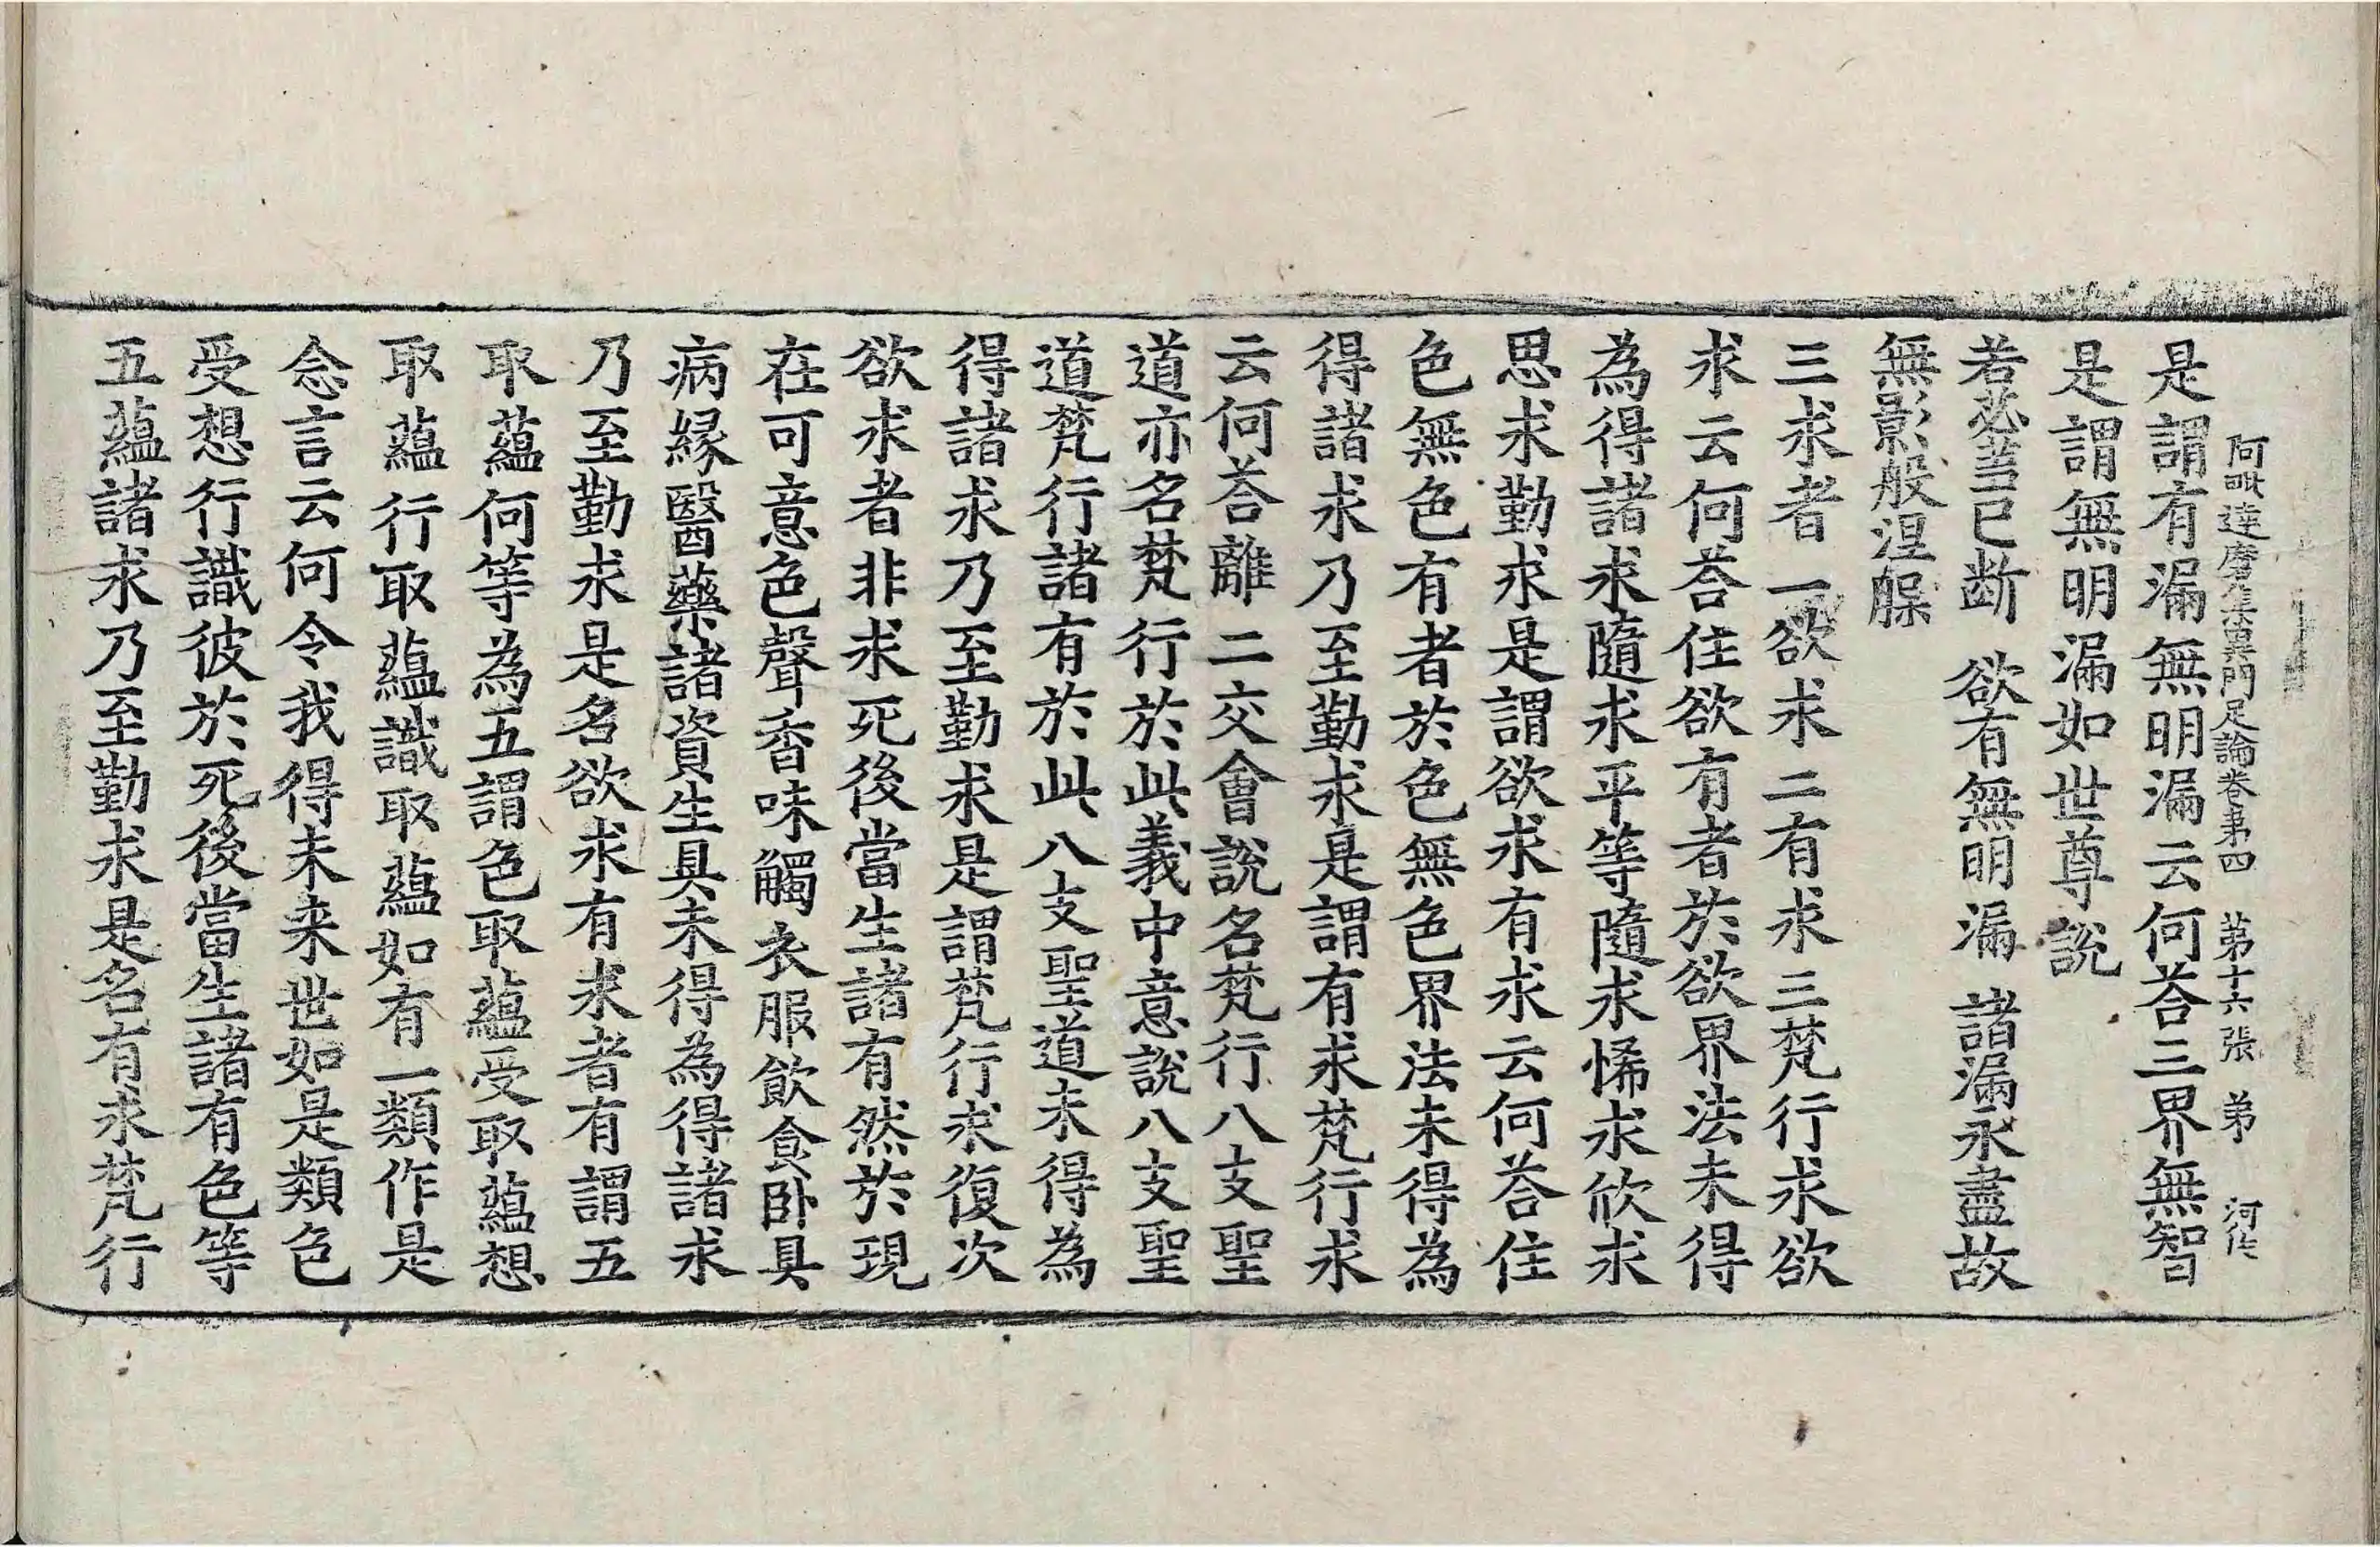 阿毗達磨集異門足論卷苐四 苐十六張 弟
是謂有漏無明漏云何荅三界無智
是謂無明漏如世尊說
若苾芻已断 欲有無明漏 諸漏永盡故
無影般涅槃
三求者一欲求二有求三梵行求欲
求云何荅住欲有者於欲界法未得
為得諸求隨求平等隨求悕求欣求
思求勤求是謂欲求有求云何荅住
色無色有者於色無色界法未得為
得諸求乃至勤求是謂有求梵行求
云何荅離二交會說名梵行八支聖
道亦名梵行於此義中意說八支聖
道梵行諸有於此八支聖道未得為
得諸求乃至勤求是謂梵行求復次
欲求者非求死後當生諸有然於現
在可意色聲香味觸衣服飲食卧具
病緣醫藥諸資生具未得為得諸求
乃至勤求是名欲求有求者有謂五
取蘊何等為五謂色取蘊受取蘊想
取蘊行取蘊識取蘊如有一類作是
念言云何令我得未来世如是類色
受想行識彼於死後當生諸有色等
五蘊諸求乃至勤求是名有求梵行